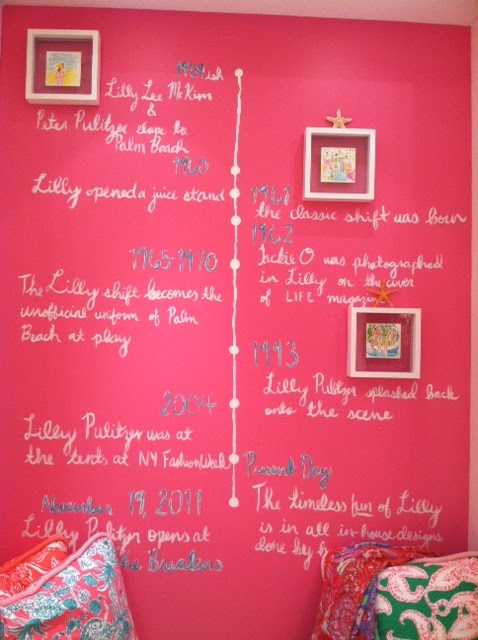 1959ish
Lilly Lee McKim
&
Peter Pulitzer elope to
Palm Beach
1960
Lilly opened a juice stand
1961
the classic shift was born
1962
Jackie O was photographed
in Lilly on the cover
of LIFE magazine
1965-1970
The Lilly shift becomes the
unofficial uniform of Palm
Beach at play
1993
Lilly Pulitzer splashed back
onto the scene
2004
Lilly Pulitzer was at
the tents at NY Fashion Week
Present Day
The timeless fun of Lilly
is in all in-house designs
done by
November 19, 2011
Lilly Pulitzer opens at
The Breakers